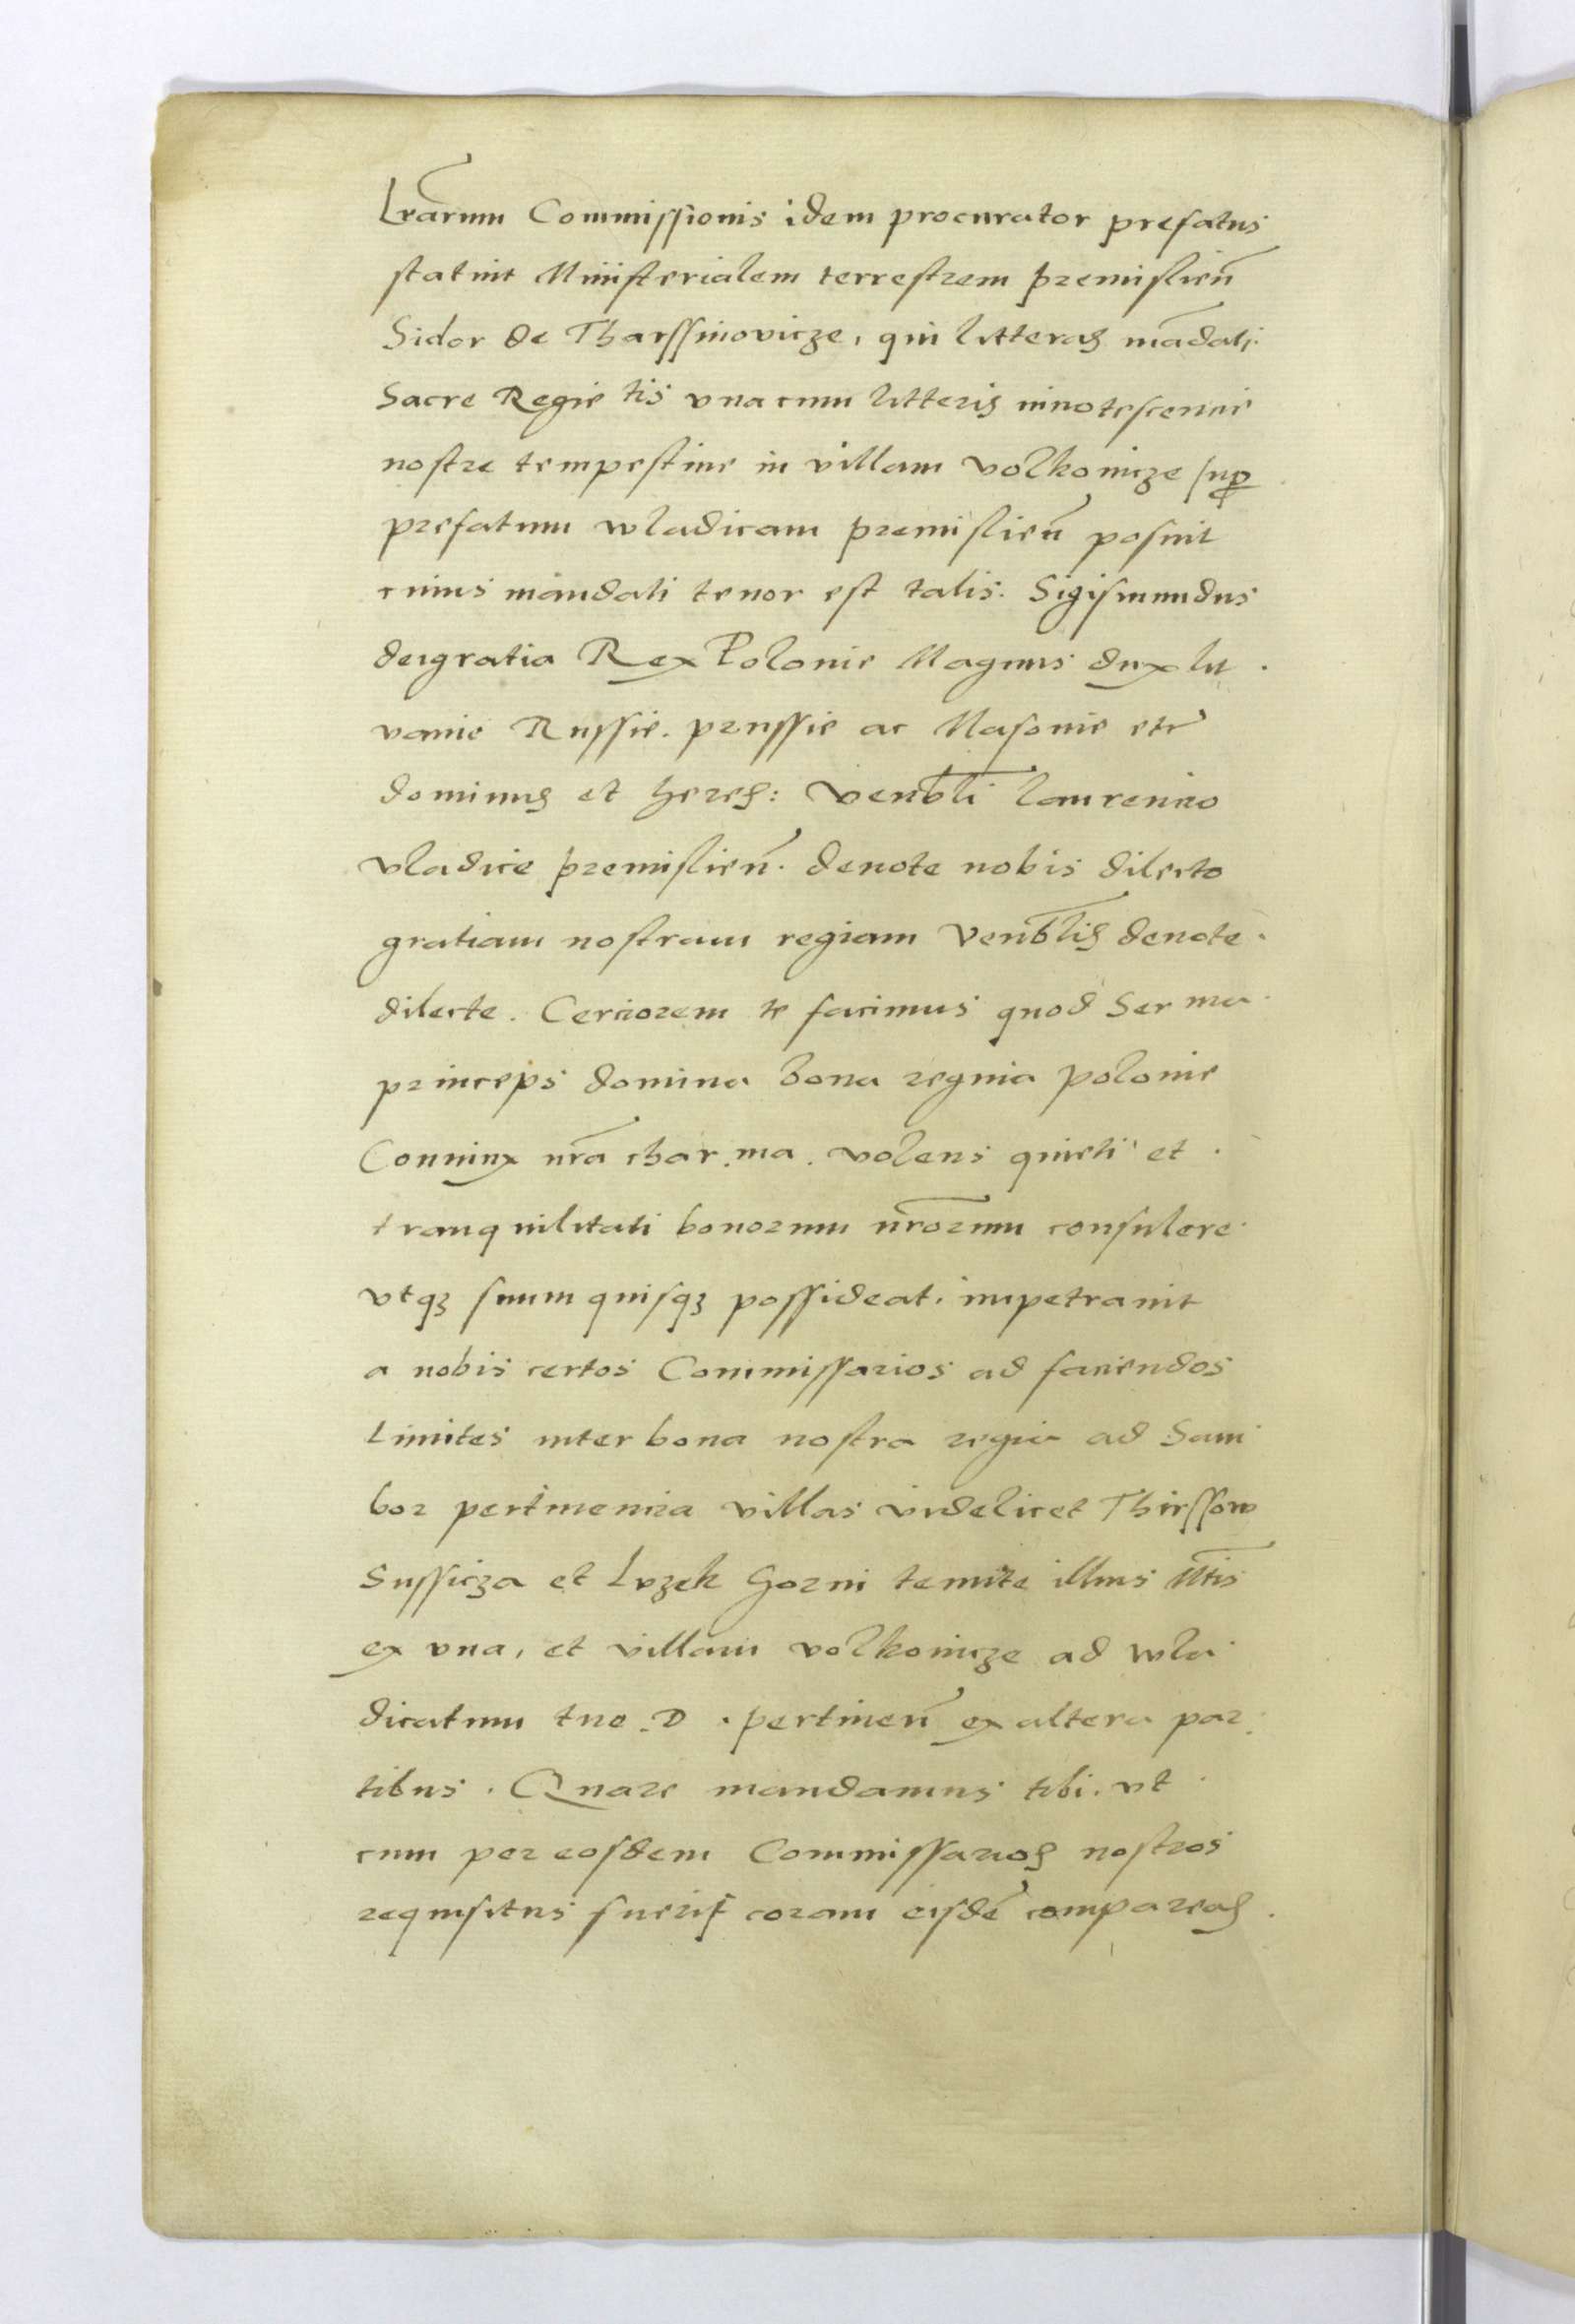 Lrarum Commissionis idem procurator prefatus
statuit Ministerialem terrestrem premislien̄
Sidor de Tharssinovicze, qui litteras mādati.
Sacre Regie tis vna cum litteris innotescencie
nostre tempestiue in villam volkouicze sup̲
prefatum wladicam premislien̄ posuit
cuius mandati tenor est talis. Sigismundus
dei gratia Rex Polonie Magnus dux lit .
vanie Russie. prussie ac Masouie etc
dominus et heres: Venbli laurencio
vladice premislien̄. deuote nobis dilecto
gratiam nostram regiam Venblis deuote.
dilecte. Cerciorem te facimus quod Ser ma.
princeps domina bona regina polonie
Coniunx nrā char.ma. volens quieti et .
tranquilitati bonorum nrōrum consulere.
vtqꝫ suum quisqꝫ possideat. impetrauit
a nobis certos Commissarios ad faciendos
Limites inter bona nostra regia ad Sam
bor pertinencia villas videlicet Thirssow
Sussicza et Luzek gorni tenute illius Mtis
ex vna, et villam volkouicze ad wla
dicatum tue .D . pertinen̄ ex altera par
tibus . Quare mandamus tibi. vt
cum per eosdem Commissarios nostros
requisitus fueris coram eisdē compareas .